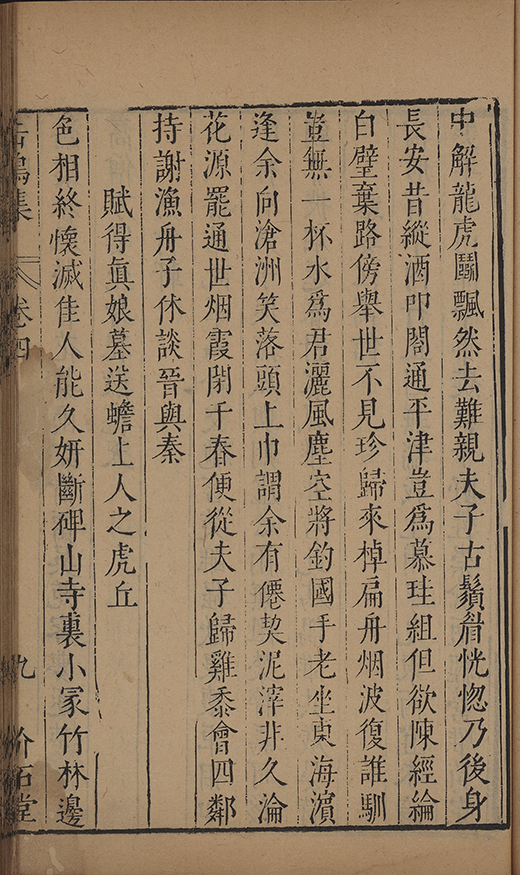 中解龍虎鬬飄然去難親夫子古鬚眉恍惚乃後身
長安昔縱酒叩閤通平津豈爲慕珪組但欲陳經綸
白璧棄路傍舉世不見珍歸來棹扁舟烟波復誰馴
豈無一杯水爲君灑風塵空將釣國手老坐東海濱
逢余向滄洲笑落頭上巾謂余有僊契泥滓非久淪
花源罷通世烟霞閉千春便從夫子歸雞黍會四鄰
持謝漁舟子休談晉與秦
賦得眞娘墓送蟾上人之虎丘
色相終懷滅佳人能久妍斷碑山寺裏小冢竹林邊
集
卷四
九
介石堂